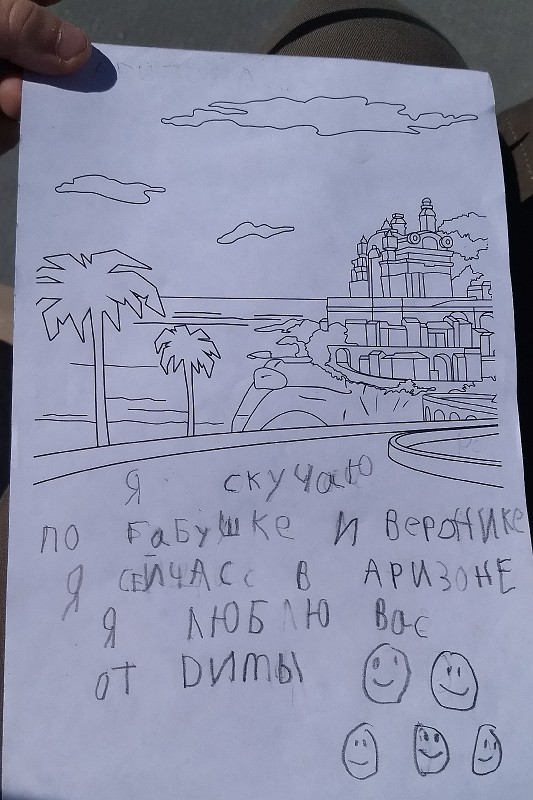 Я скучаю
по бабушке и веронике
Я СЕЙЧАСс в АРИЗОНЕ
Я ЛЮБЛЮ вас
от Димы